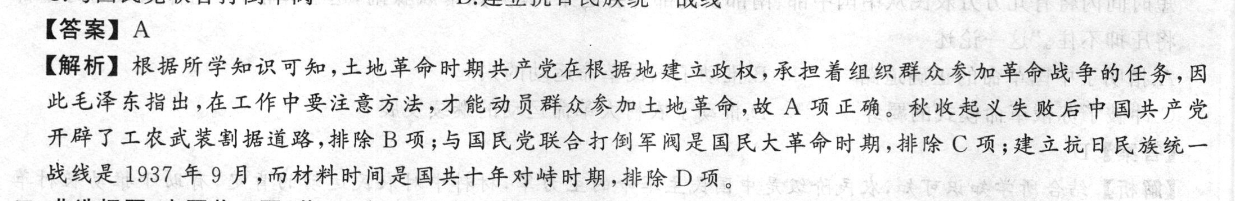 D.建立抗日民族统一战线
【答案】A
【解析】根据所学知识可知,土地革命时期共产党在根据地建立政权,承担着组织群众参加革命战争的任务,因
此毛泽东指出,在工作中要注意方法,才能动员群众参加土地革命,故 A 项正确。秋收起义失败后中国共产党
开辟了工农武装割据道路,排除 B 项;与国民党联合打倒军阀是国民大革命时期,排除 C 项;建立抗日民族统一
战线是 1937 年 9 月,而材料时间是国共十年对峙时期,排除 D 项。